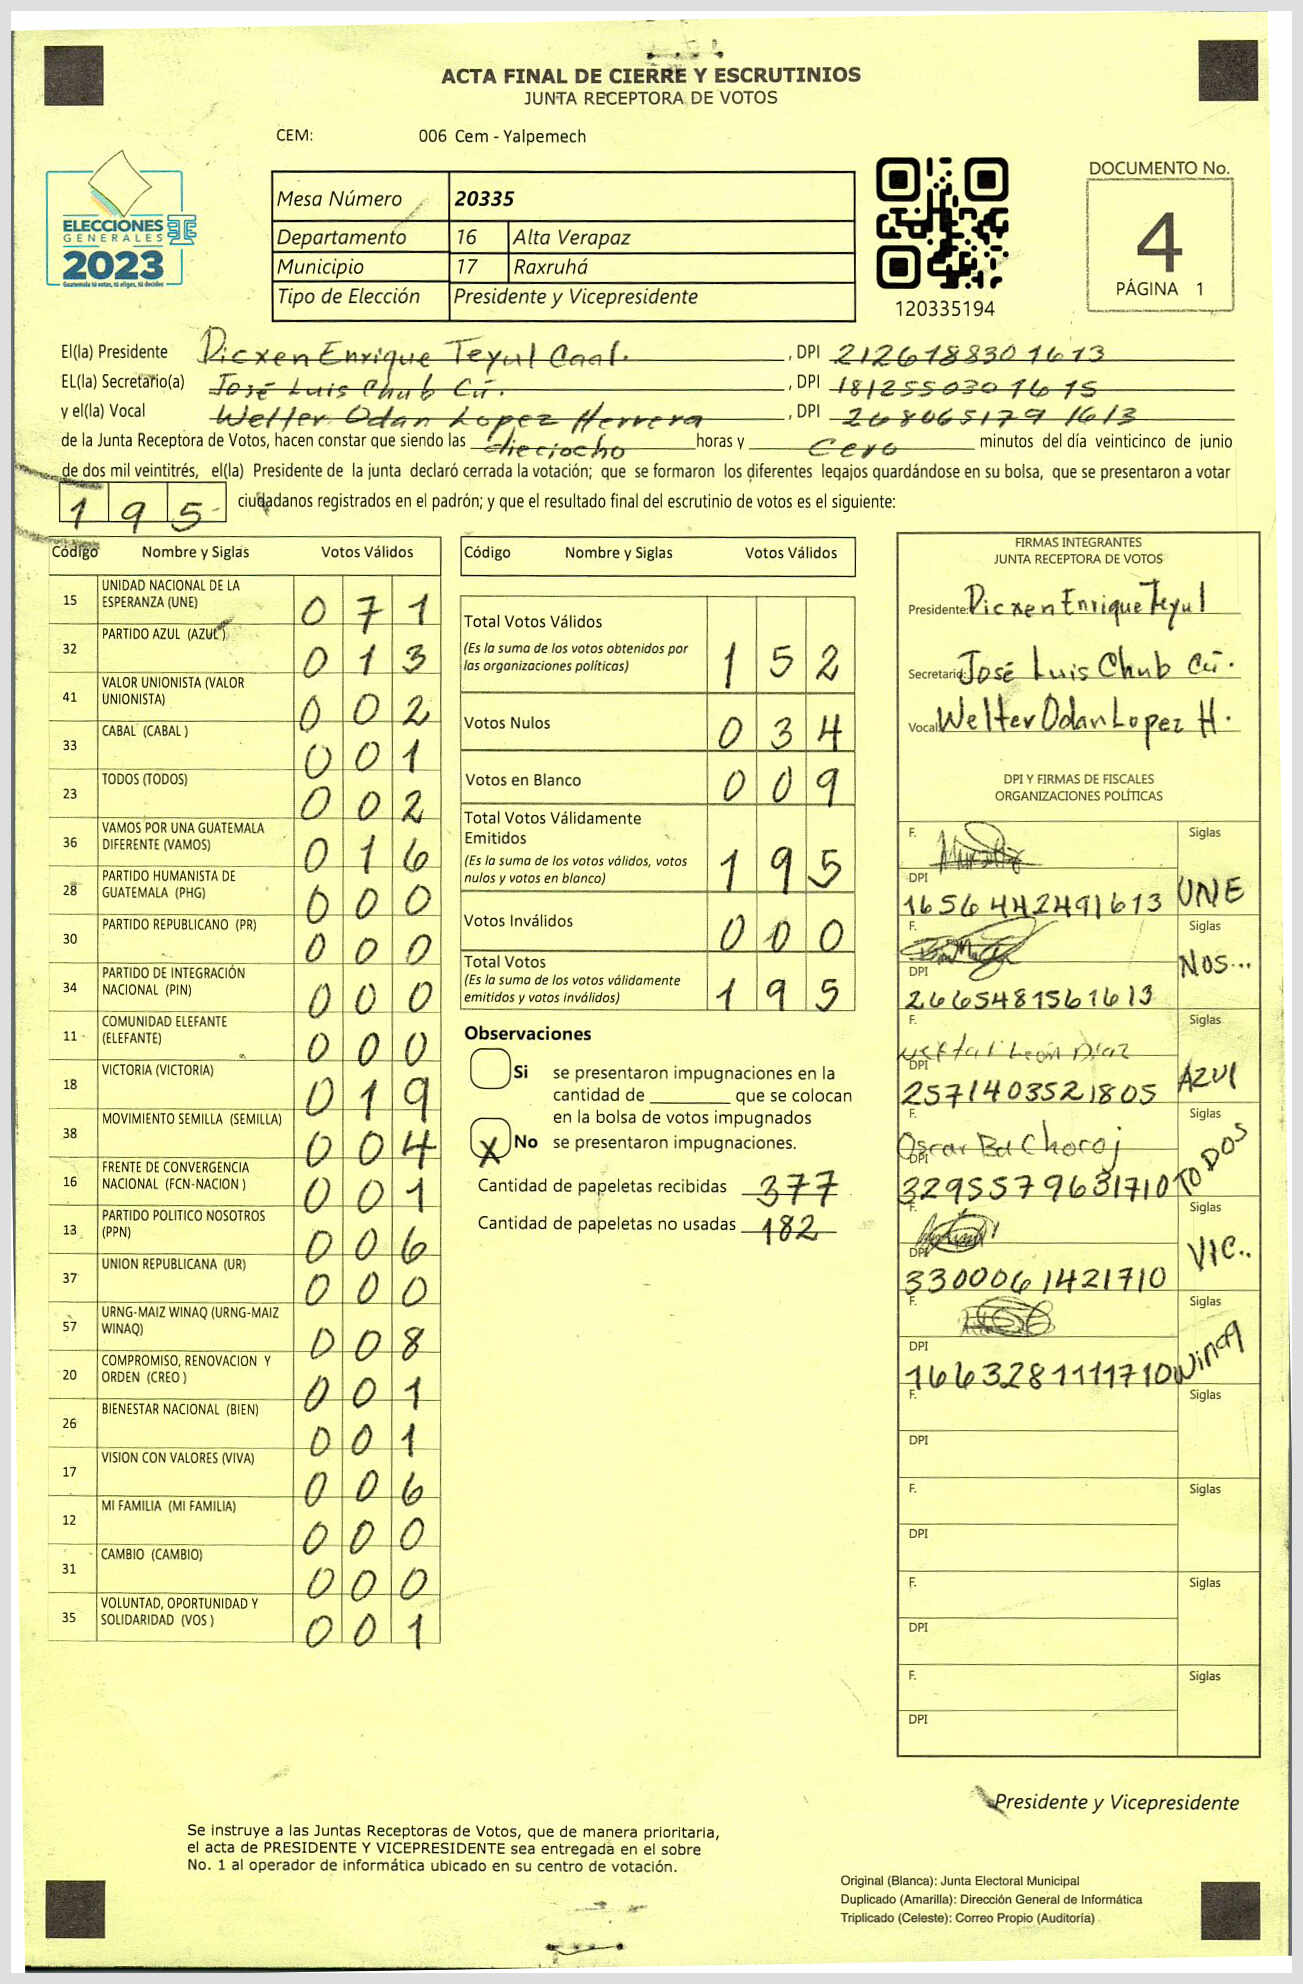 ACTA FINAL DE CIERRE Y ESCRUTINIOS
JUNTA RECEPTORA DE VOTOS
CEM: 006 Cem - Yalpemech
ELECCIONES
GENERALES
2023
Guatemala tú votas, tú eliges, tú decides
Mesa Número 20335
Departamento 16 Alta Verapaz
Municipio 17 Raxruhá
Tipo de Elección Presidente y Vicepresidente
120335194
DOCUMENTO No.
4
PÁGINA 1
El(la) Presidente Dicxen Enrique Teyul Caal. , DPI 2126188301613
EL(la) Secretario(a) José Luis Chub Cú. , DPI 1812550301615
y el(la) Vocal Welter Odan Lopez Herrera , DPI 2680651791613
de la Junta Receptora de Votos, hacen constar que siendo las dieciocho horas y cero minutos del día veinticinco de junio
de dos mil veintitrés, el(la) Presidente de la junta declaró cerrada la votación; que se formaron los diferentes legajos guardándose en su bolsa, que se presentaron a votar
195 ciudadanos registrados en el padrón; y que el resultado final del escrutinio de votos es el siguiente:
Código Nombre y Siglas Votos Válidos
15 UNIDAD NACIONAL DE LA
ESPERANZA (UNE) 071
32 PARTIDO AZUL (AZUL) 013
41 VALOR UNIONISTA (VALOR
UNIONISTA) 002
33 CABAL (CABAL ) 001
23 TODOS (TODOS) 002
36 VAMOS POR UNA GUATEMALA
DIFERENTE (VAMOS) 016
28 PARTIDO HUMANISTA DE
GUATEMALA (PHG) 000
30 PARTIDO REPUBLICANO (PR) 000
34 PARTIDO DE INTEGRACIÓN
NACIONAL (PIN) 000
11 COMUNIDAD ELEFANTE
(ELEFANTE) 000
18 VICTORIA (VICTORIA) 019
38 MOVIMIENTO SEMILLA (SEMILLA) 004
16 FRENTE DE CONVERGENCIA
NACIONAL (FCN-NACION ) 001
13 PARTIDO POLITICO NOSOTROS
(PPN) 006
37 UNION REPUBLICANA (UR) 000
57 URNG-MAIZ WINAQ (URNG-MAIZ
WINAQ) 008
20 COMPROMISO, RENOVACION Y
ORDEN (CREO ) 001
26 BIENESTAR NACIONAL (BIEN) 001
17 VISION CON VALORES (VIVA) 006
12 MI FAMILIA (MI FAMILIA) 000
31 CAMBIO (CAMBIO) 000
35 VOLUNTAD, OPORTUNIDAD Y
SOLIDARIDAD (VOS ) 001
Código Nombre y Siglas Votos Válidos
Total Votos Válidos
(Es la suma de los votos obtenidos por
las organizaciones políticas) 152
Votos Nulos 034
Votos en Blanco 009
Total Votos Válidamente
Emitidos
(Es la suma de los votos válidos, votos
nulos y votos en blanco) 195
Votos Inválidos 000
Total Votos
(Es la suma de los votos válidamente
emitidos y votos inválidos) 195
Observaciones
Si se presentaron impugnaciones en la
cantidad de ________ que se colocan
en la bolsa de votos impugnados
X No se presentaron impugnaciones.
Cantidad de papeletas recibidas 377
Cantidad de papeletas no usadas 182
FIRMAS INTEGRANTES
JUNTA RECEPTORA DE VOTOS
Presidente: Dicxen Enrique Teyul
Secretario: José Luis Chub Cú.
Vocal: Welter Odan Lopez H.
DPI Y FIRMAS DE FISCALES
ORGANIZACIONES POLÍTICAS
F. Siglas
DPI
1656442491613 UNE
F. Siglas
DPI
2665481561613 NOS...
F. Siglas
León Díaz
DPI
2571403521805 AZUL
F. Siglas
Oscar Choroj
DPI
3295579631710 TODOS
F. Siglas
DPI
3300061421710 VIC..
F. Siglas
DPI
1663281111710 Winaq
F. Siglas
DPI
F. Siglas
DPI
F. Siglas
DPI
F. Siglas
DPI
Presidente y Vicepresidente
Se instruye a las Juntas Receptoras de Votos, que de manera prioritaria,
el acta de PRESIDENTE Y VICEPRESIDENTE sea entregada en el sobre
No. 1 al operador de informática ubicado en su centro de votación.
Original (Blanca): Junta Electoral Municipal
Duplicado (Amarilla): Dirección General de Informática
Triplicado (Celeste): Correo Propio (Auditoría)